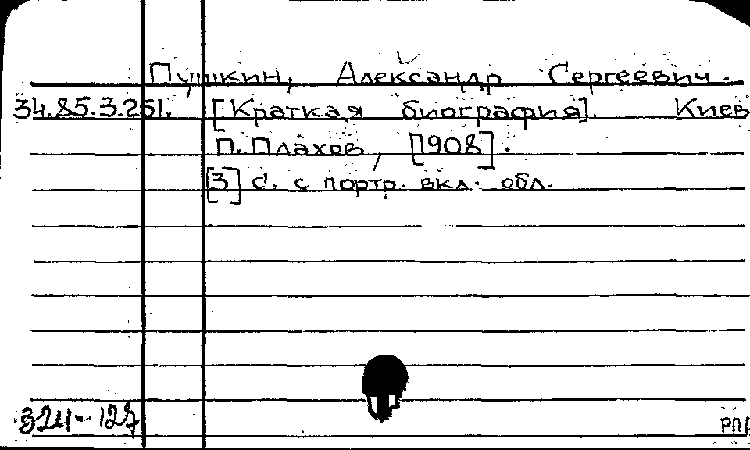 Пушкин, Александр Сергеевич.
34.85.3.251. [Краткая биография]. Киев
П. Плахов, [908].
[3] с. с портр. вкл. обл.
324-127